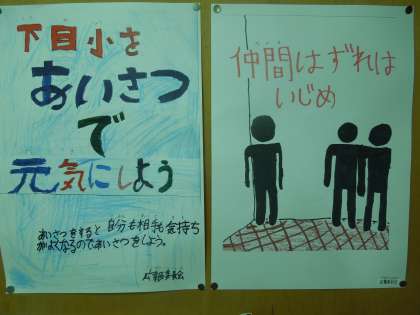 下目小を
あいさつ
で
元気にしよう
あいさつをすると自分も相手も気持ち
がよくなるのであいさつをしよう。
仲間はずれは
いじめ